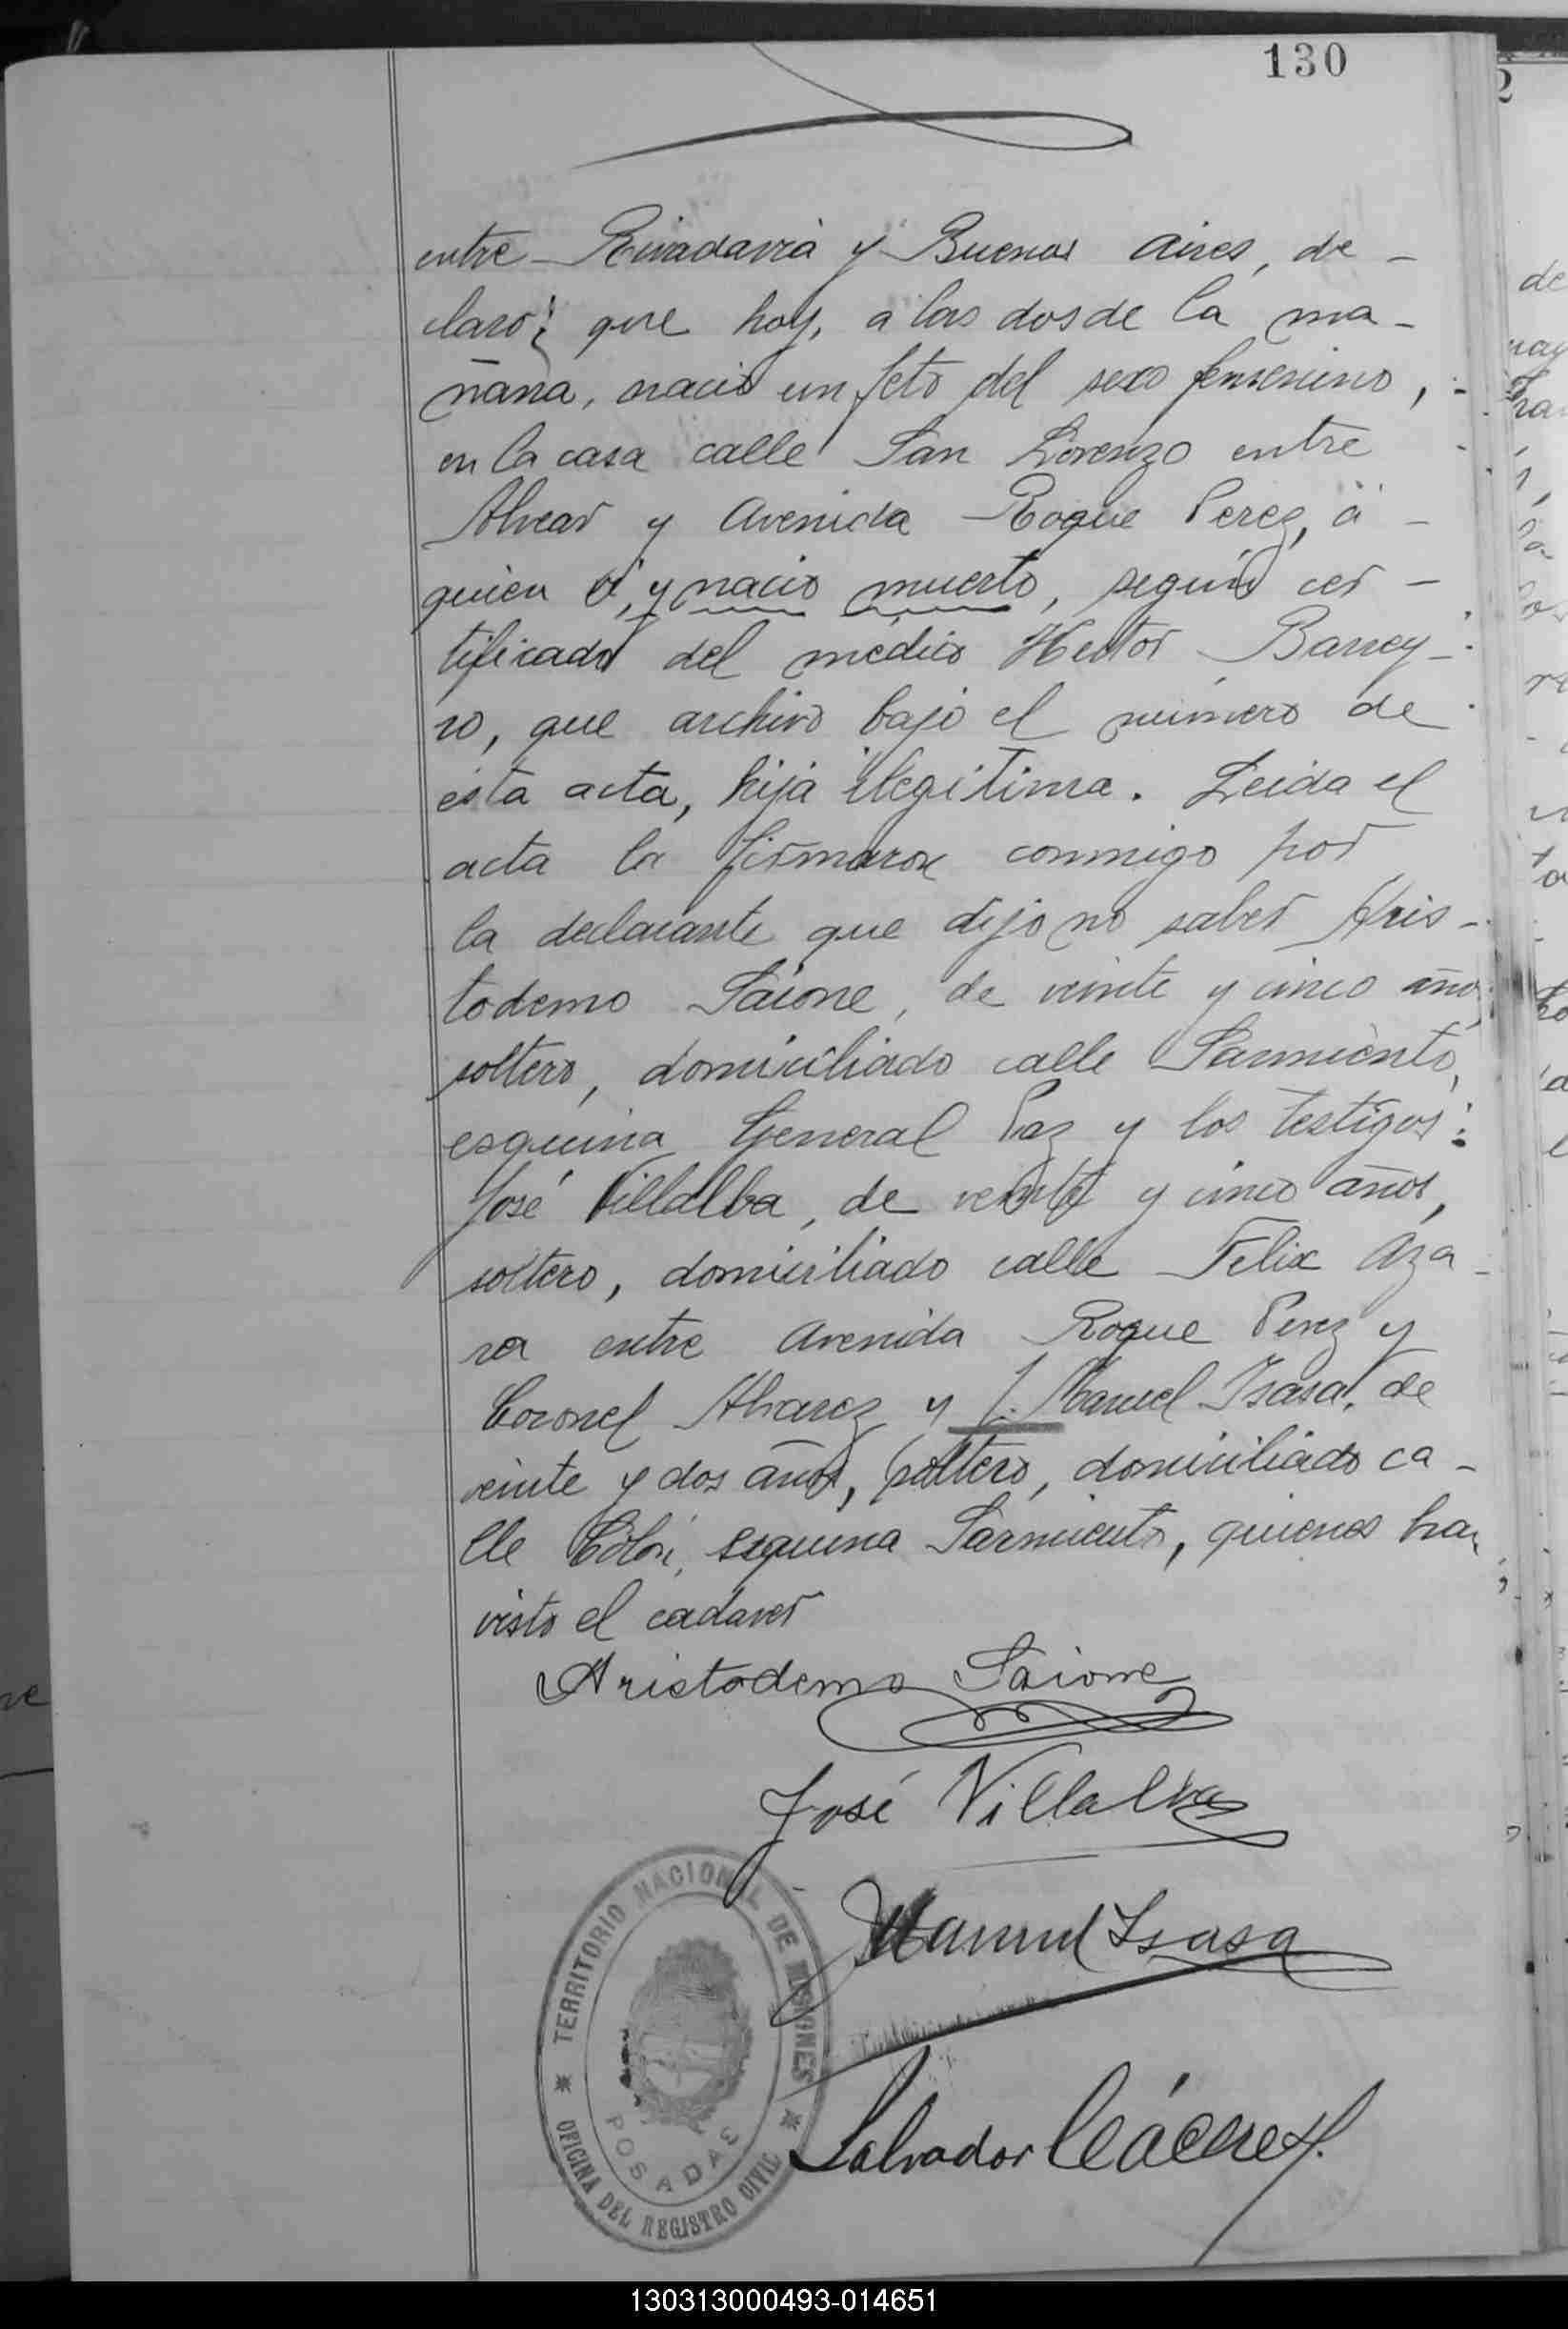 130
entre Rivadavia y Buenos Aires, de-
claró: que hoy, a las dos de la ma-
ñana, nació un feto del sexo femenino,
en la casa calle San Lorenzo entre
Alvear y Avenida Roque Perez, á
quien ví, y nació muerto, según cer-
tificado del médico Hector Barrey-
ro, que archivo bajo el número de
esta acta, hija ilegitima. Leida el
acta la firmaron conmigo por
la declarante que dijo no saber Aris-
todemo Saione, de veinte y cinco años
soltero, domiciliado calle Sarmiento,
esquina General Paz y los testigos:
José Villalba, de veinte y cinco años,
soltero, domiciliado calle Felix Aza-
ra entre Avenida Roque Perez y
Coronel Alvarez y J. Manuel Isasa, de
veinte y dos años, soltero, domiciliado ca-
lle Colón, esquina Sarmiento, quienes han
visto el cadaver
Aristodemo Saione
José Villalba
Manuel Isasa
TERRITORIO NACIONAL DE MISIONES
POSADAS
OFICINA DEL REGISTRO CIVIL
Salvador Cáceres
130313000493-014651